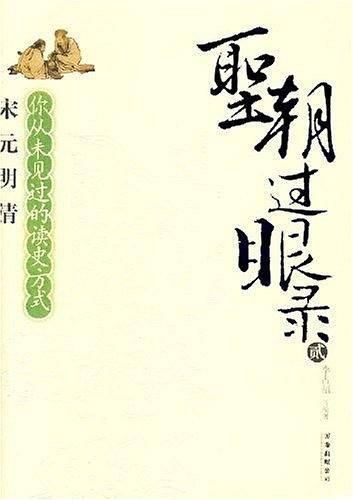 聖朝过眼录
贰
你从未见过的读史方式
宋元明清
万卷出版公司